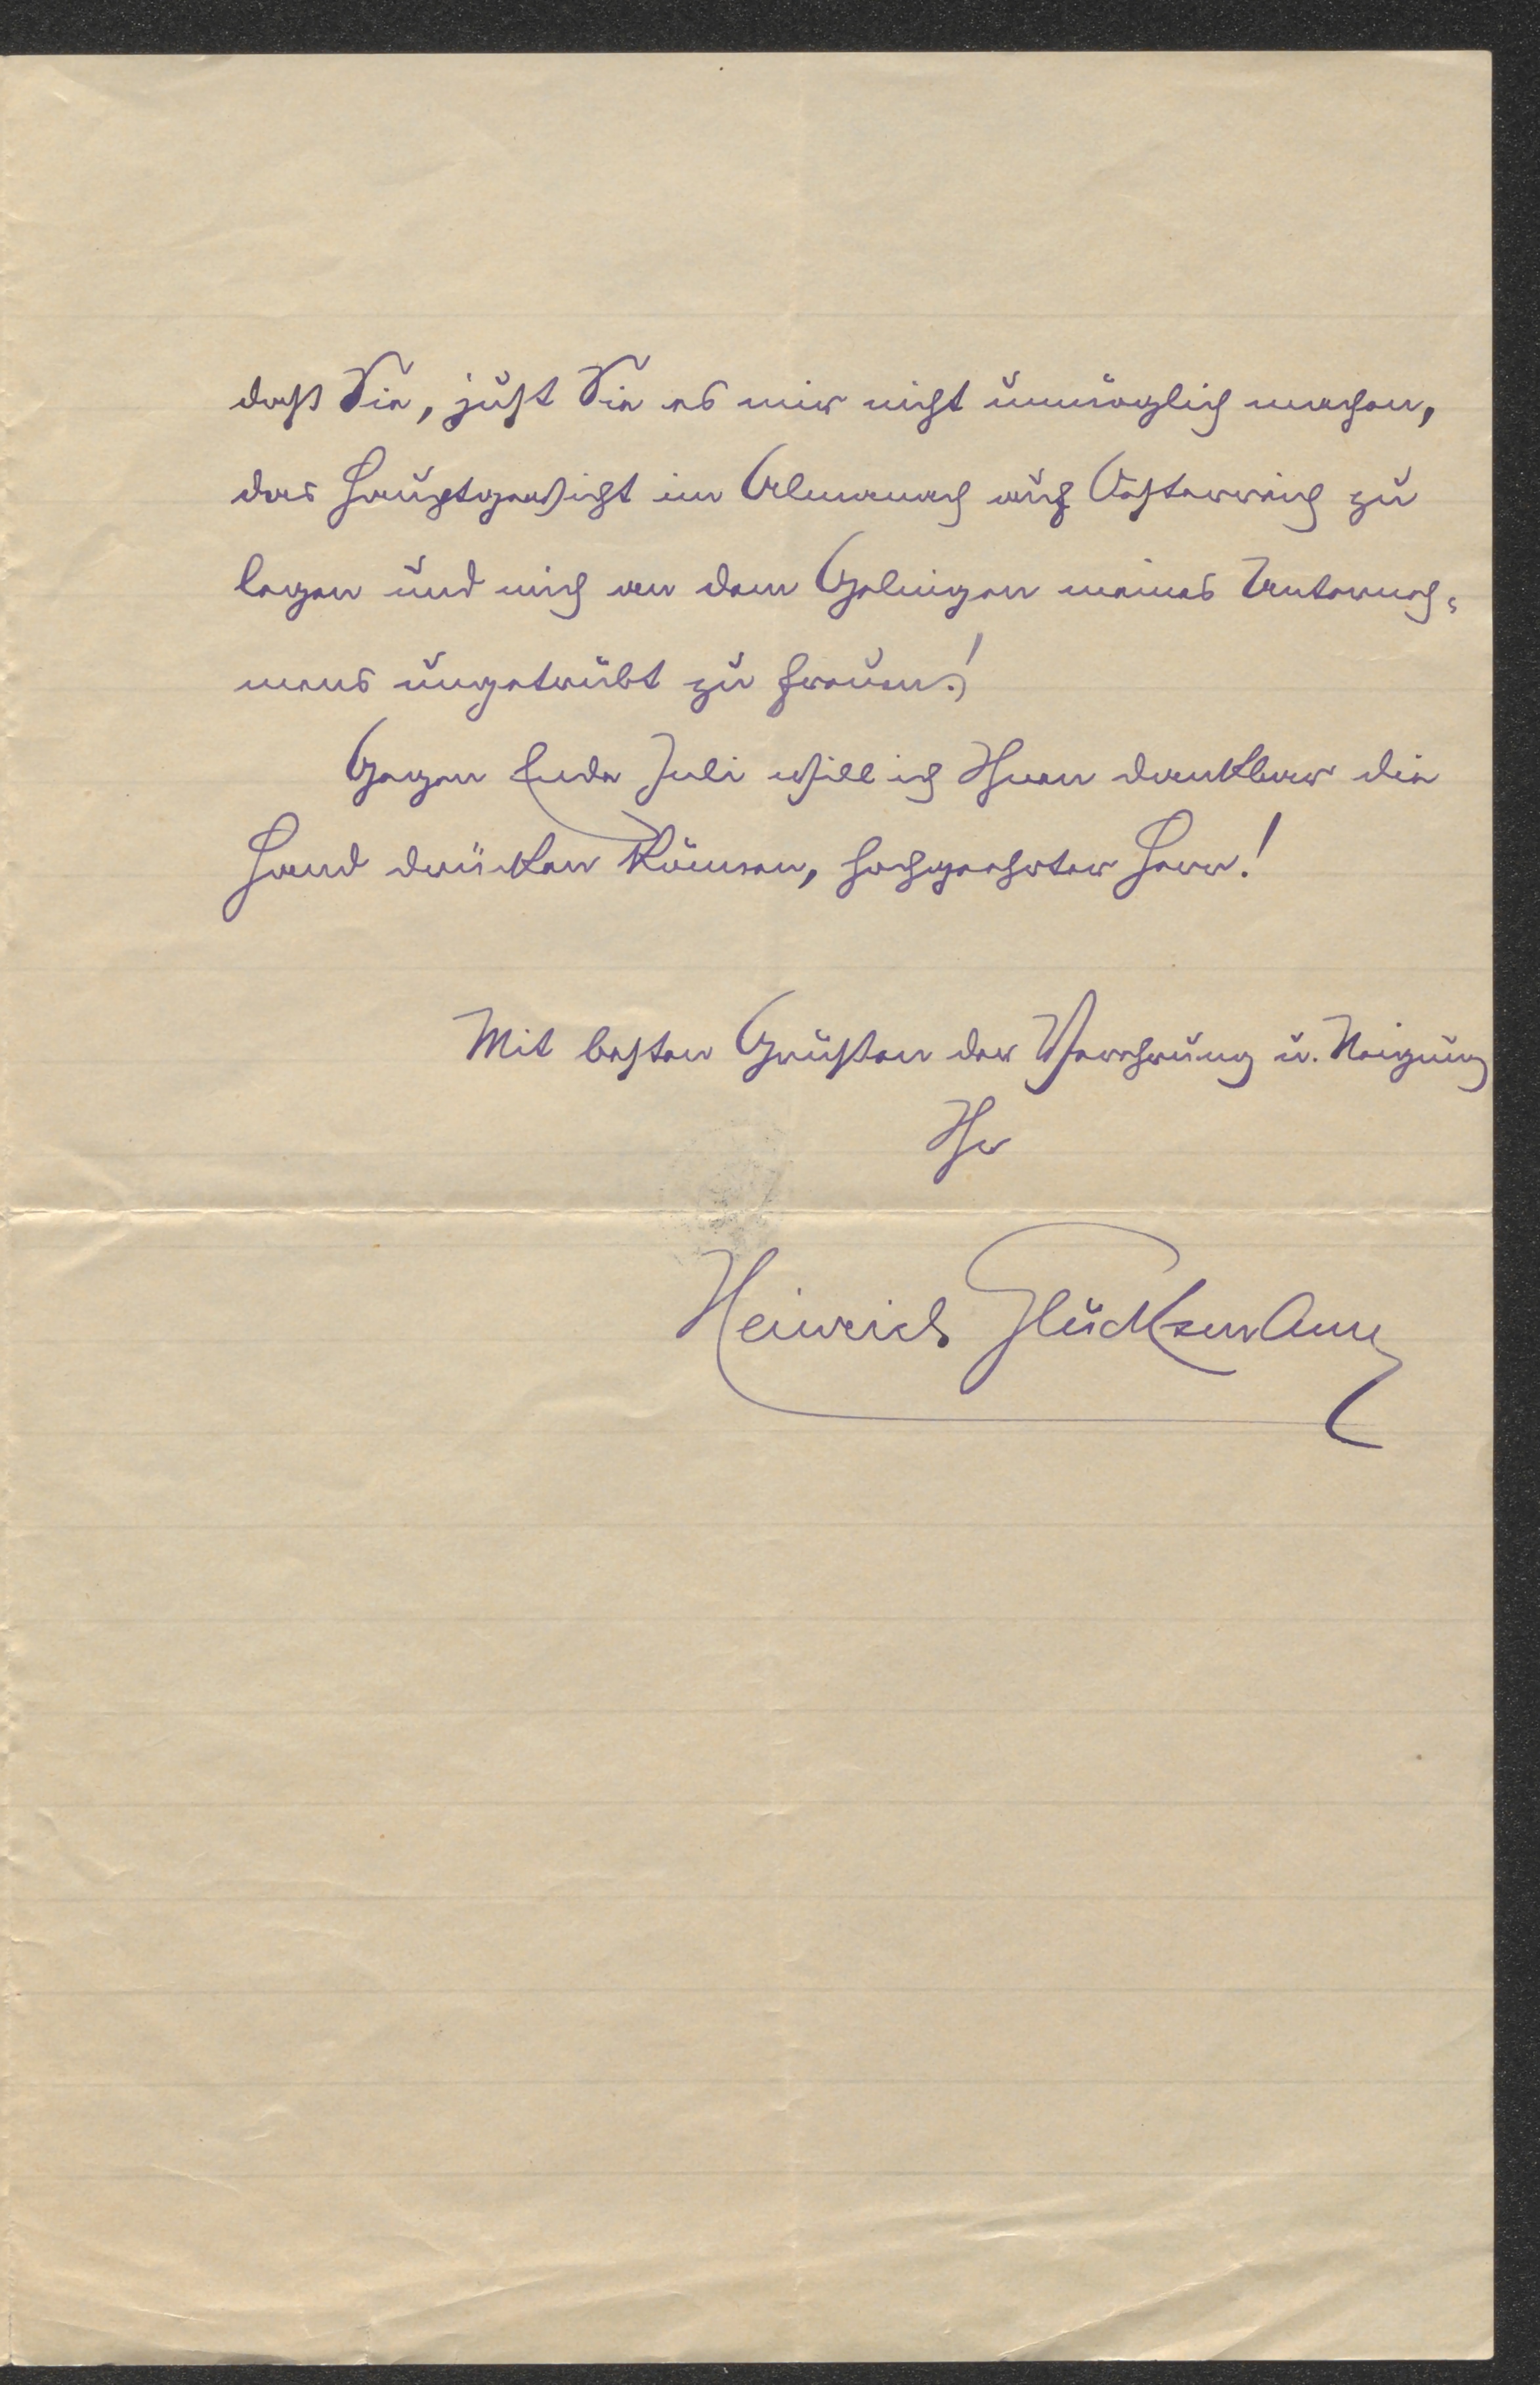 daß Sie, just Sie es mir nicht unmöglich machen,
das Hauptgewicht im Almanach auf Oesterreich zu
legen und mich an dem Gelingen meines Unterneh-
mens ungetrübt zu freuen!
Gegen Ende Juli will ich Ihnen dankbar die
Hand drücken können, hochgeehrter Herr!
Mit besten Grüßen der Verehrung u. Neigung
Ihr
Heinrich Glücksmann